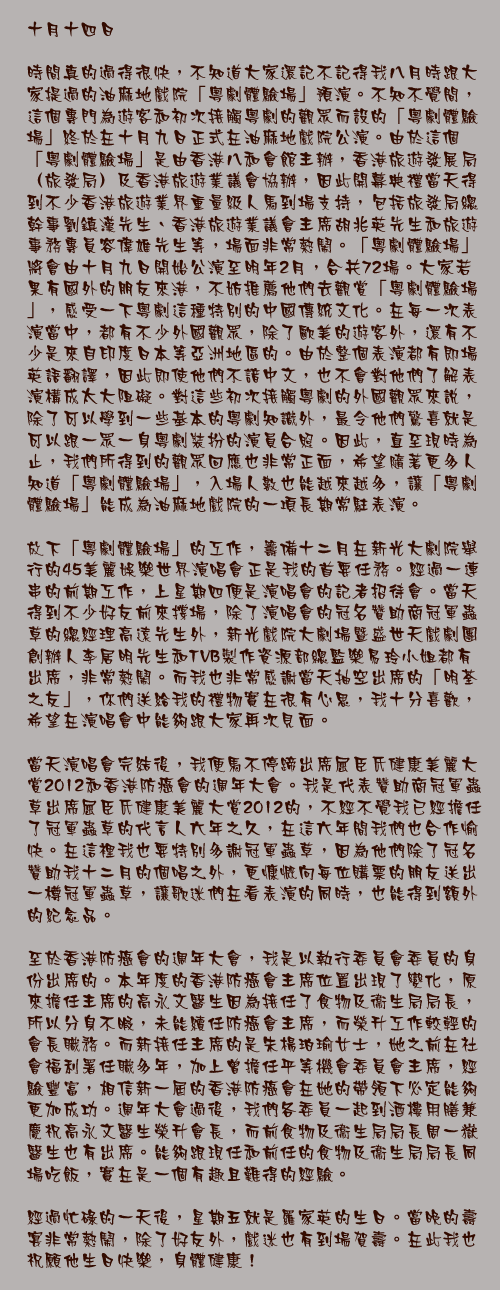 十月十四日
時間真的過得很快，不知道大家還記不記得我八月時跟大
家提過的油麻地戲院「粵劇體驗場」預演。不知不覺間，
這個專門為遊客和初次接觸粵劇的觀眾而設的「粵劇體驗
場」終於在十月九日正式在油麻地戲院公演。由於這個
「粵劇體驗場」是由香港八和會館主辦，香港旅遊發展局
（旅發局）及香港旅遊業議會協辦，因此開幕典禮當天得
到不少香港旅遊業界重量級人馬到場支持，包括旅發局總
幹事劉鎮漢先生、香港旅遊業議會主席胡兆英先生和旅遊
事務專員容偉雄先生等，場面非常熱鬧。「粵劇體驗場」
將會由十月九日開始公演至明年2月，合共72場。大家若
果有國外的朋友來港，不妨推薦他們去觀賞「粵劇體驗場
」，感受一下粵劇這種特別的中國傳統文化。在每一次表
演當中，都有不少外國觀眾，除了歐美的遊客外，還有不
少是來自印度日本等亞洲地區的。由於整個表演都有即場
英語翻譯，因此即使他們不諳中文，也不會對他們了解表
演構成太大阻礙。對這些初次接觸粵劇的外國觀眾來說，
除了可以學到一些基本的粵劇知識外，最令他們驚喜就是
可以跟一眾一身粵劇裝扮的演員合照。因此，直至現時為
止，我們所得到的觀眾回應也非常正面，希望隨著更多人
知道「粵劇體驗場」，入場人數也能越來越多，讓「粵劇
體驗場」能成為油麻地戲院的一項長期常駐表演。
放下「粵劇體驗場」的工作，籌備十二月在新光大劇院舉
行的45美麗娛樂世界演唱會正是我的首要任務。經過一連
串的前期工作，上星期四便是演唱會的記者招待會。當天
得到不少好友前來撐場，除了演唱會的冠名贊助商冠軍蟲
草的總經理高遠先生外，新光戲院大劇場暨盛世天戲劇團
創辦人李居明先生和TVB製作資源部總監樂易玲小姐都有
出席，非常熱鬧。而我也非常感謝當天抽空出席的「明荃
之友」，你們送給我的禮物實在很有心思，我十分喜歡，
希望在演唱會中能夠跟大家再次見面。
當天演唱會完結後，我便馬不停蹄出席屈臣氏健康美麗大
賞2012和香港防癌會的週年大會。我是代表贊助商冠軍蟲
草出席屈臣氏健康美麗大賞2012的，不經不覺我已經擔任
了冠軍蟲草的代言人六年之久，在這六年間我們也合作愉
快。在這裡我也要特別多謝冠軍蟲草，因為他們除了冠名
贊助我十二月的個唱之外，更慷慨向每位購票的朋友送出
一樽冠軍蟲草，讓歌迷們在看表演的同時，也能得到額外
的紀念品。
至於香港防癌會的週年大會，我是以執行委員會委員的身
份出席的。本年度的香港防癌會主席位置出現了變化，原
來擔任主席的高永文醫生因為接任了食物及衛生局局長，
所以分身不暇，未能續任防癌會主席，而榮升工作較輕的
會長職務。而新接任主席的是朱楊珀瑜女士，她之前在社
會福利署任職多年，加上曾擔任平等機會委員會主席，經
驗豐富，相信新一屆的香港防癌會在她的帶領下必定能夠
更加成功。週年大會過後，我們各委員一起到酒樓用膳兼
慶祝高永文醫生榮升會長，而前食物及衛生局局長周一嶽
醫生也有出席。能夠跟現任和前任的食物及衛生局局長同
場吃飯，實在是一個有趣且難得的經驗。
經過忙碌的一天後，星期五就是羅家英的生日。當晚的壽
宴非常熱鬧，除了好友外，戲迷也有到場賀壽。在此我也
祝願他生日快樂，身體健康！